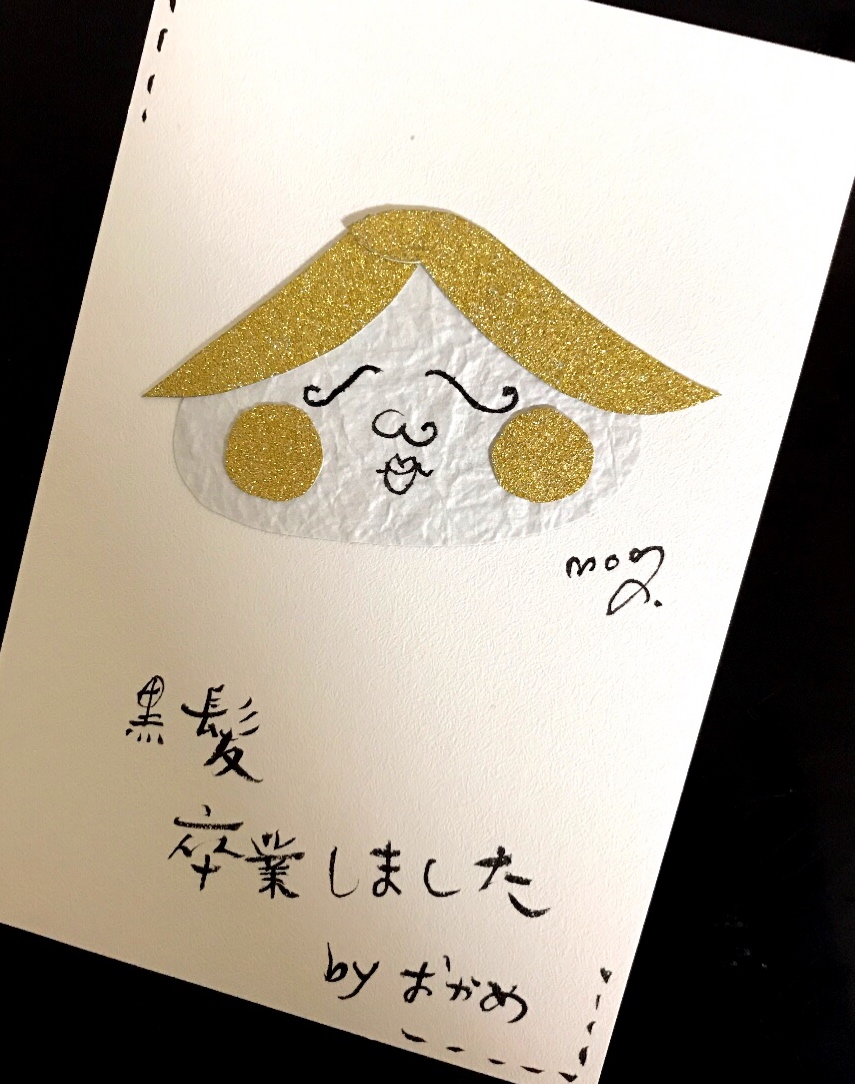 黒髪
卒業しました
by おかめ